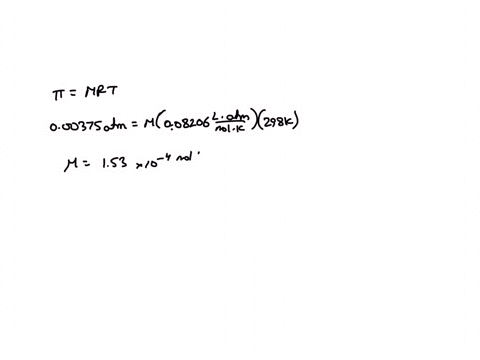 π = MRT
0.00375 atm = M(0.08206 L·atm/mol·K)(298K)
M = 1.53 ×10⁻⁴ mol